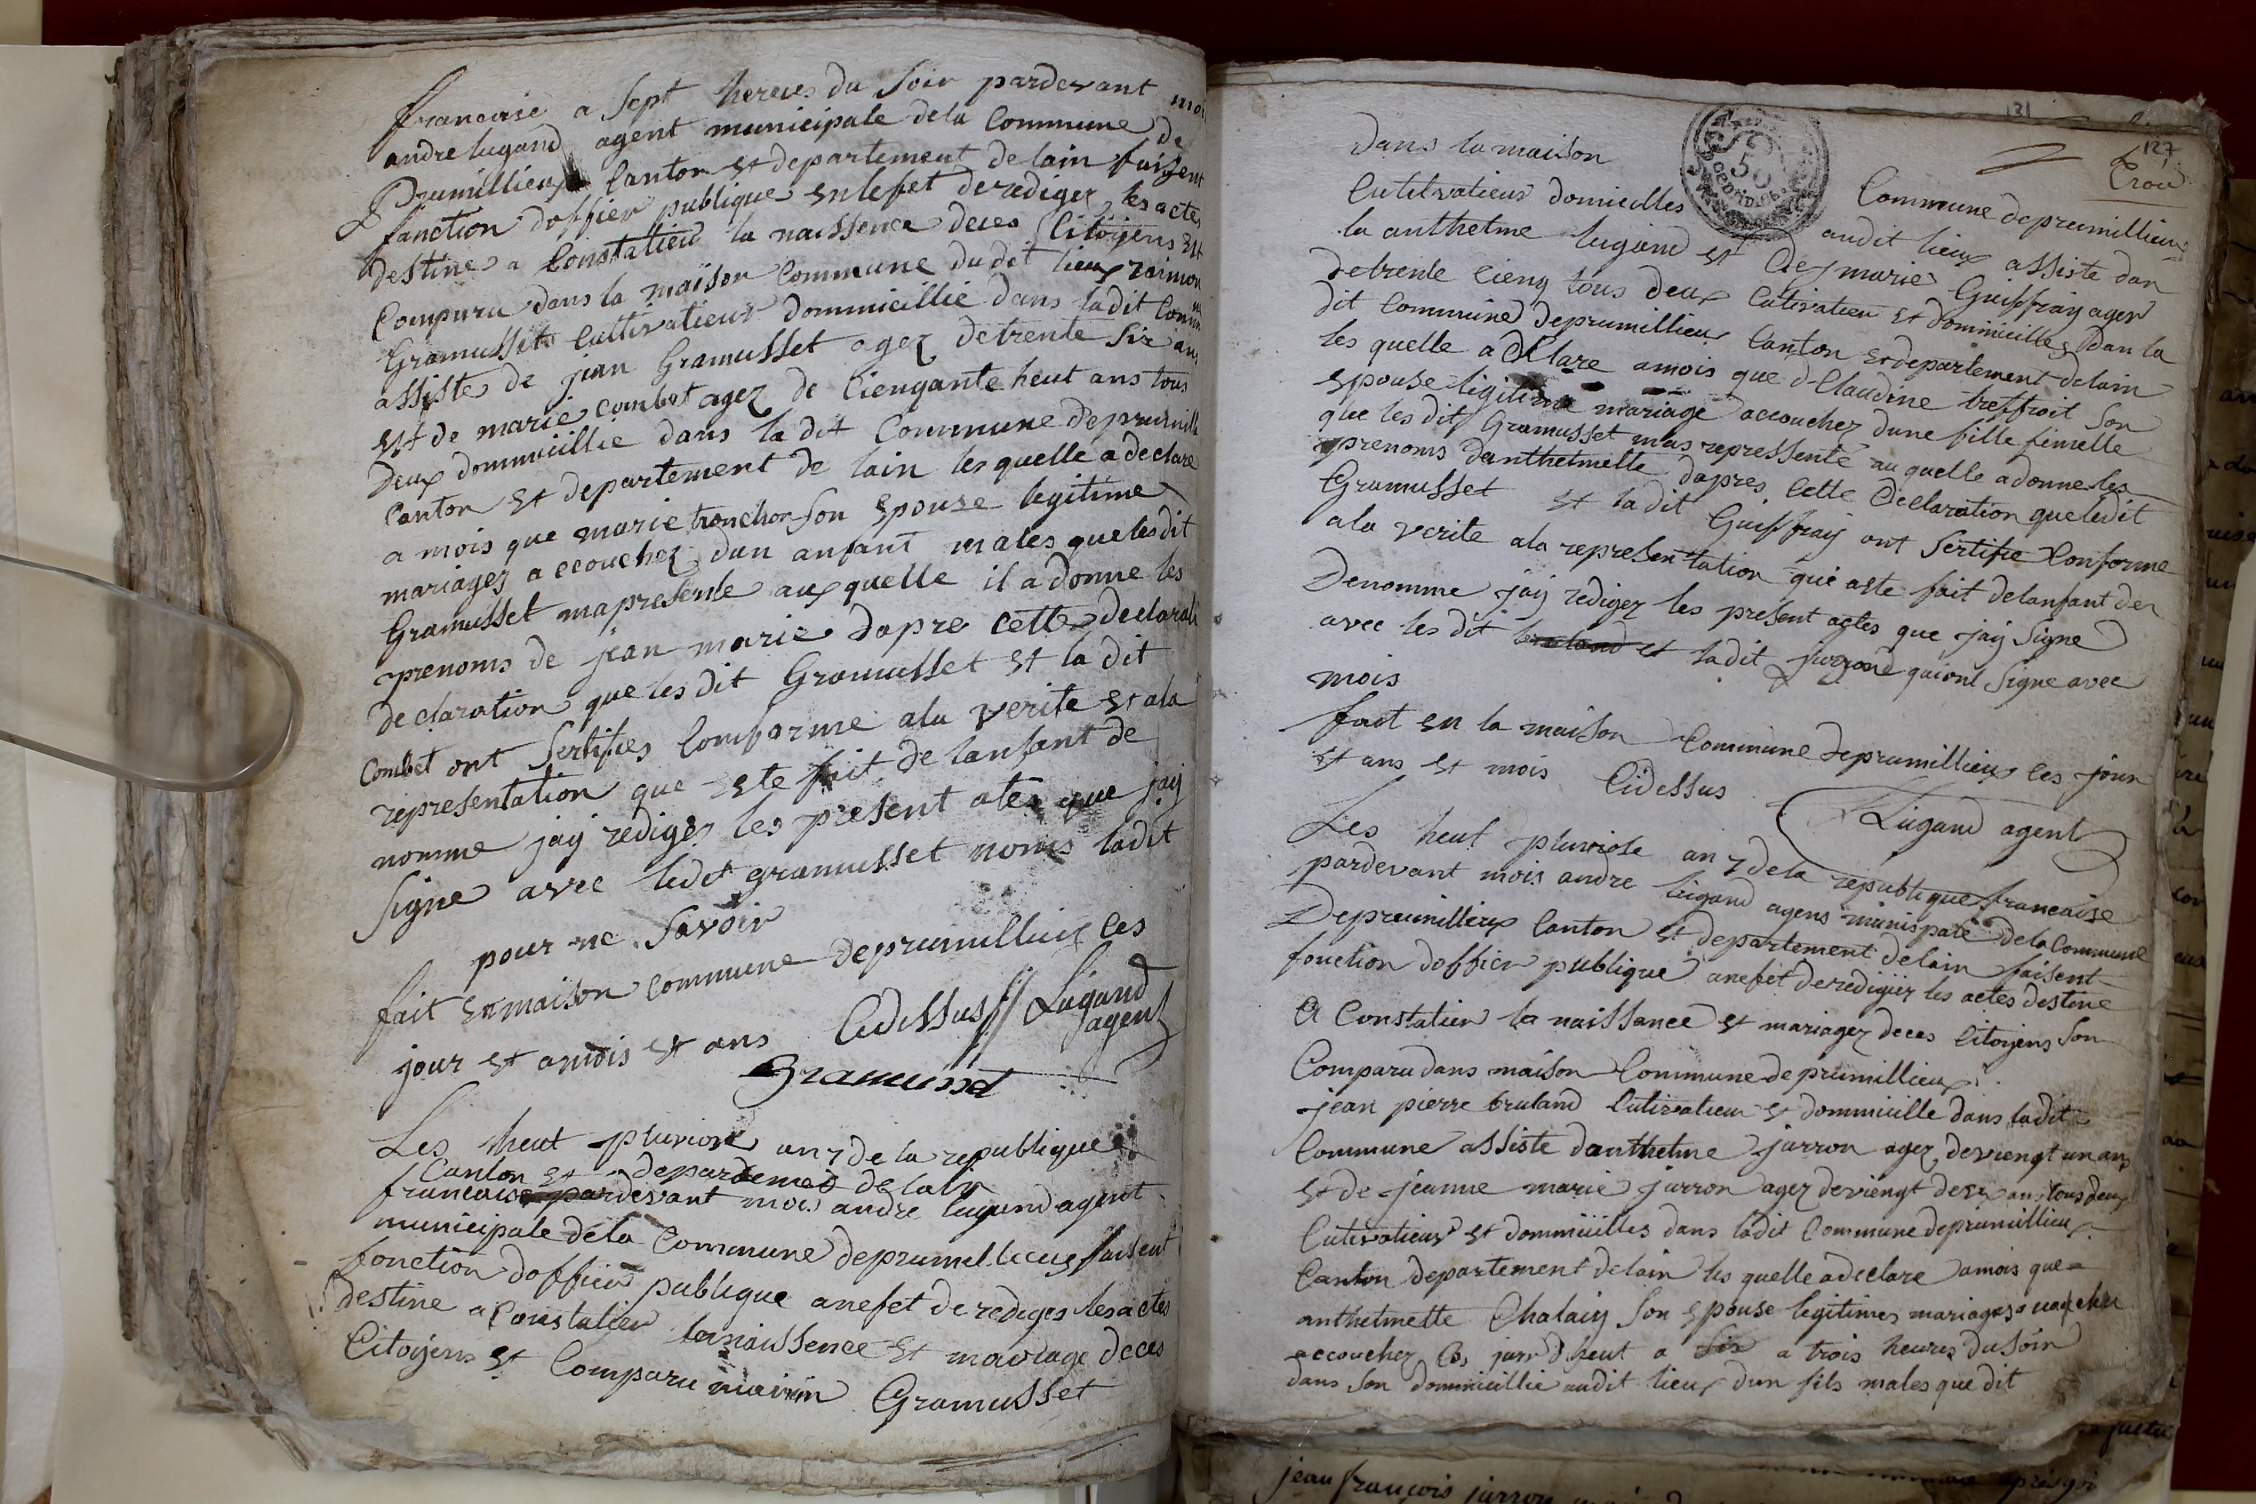 francaise a sept heures du soir pardevant moi
andre lugand agent municipale dela Commune de
Prumillieux Canton et departement de lain faisent
fonction doffier publique en lefet derediger les actes
destine a Constatieu la naissence deces Citoijens Est
Compuru dans la maison Commune dudit lieux raimon
Gramusset Cultivatieur dommicillie dans ladit Commu
assiste de jean Gramusset agez detrente six ans
Est de marie combet agez de Cienqante heut ans tous
deux dommicillie dans la dit Commune deprumilli
Canton Et departement de lain les quelle a declare
a mois que marie tronchon son Epouse legitime
mariagez accouchez dun anfant males que les dit
Gramusset ma presente aux quelle il a donne les
prenoms de jean marie dapre cette declarati
declaration que les dit Gramusset Et la dit
Combet ont sertifies Comforme ala verite Et ala
representation que Este fait de lanfant de
nomme jaij rediges les present ates que jaij
signe avec ledit gramusset nonis ladit
pour ne savoir
fait Enmaison commune deprumillieux les
jour Et amois Et ans Cidessus // Lugand
agent
Gramusset
Les heut pluviose an 7 de la republique
Canton Et departemet de lain
francaise pardevant moi andre lugand agent
municipale dela Commune deprumillieux faisent
fonction doffiier publique anefet derediges les actes
destine a Constatier lanaissence Et mariage deces
Citoijens Et Comparu Gramusset
131
127
Dans la maison Commune deprumillieux
Cultivatieur domicilles audit lieux assiste dan
la anthelme lugand Et de marie Guiffraij ager
detrente Cienq tous deux Cultivatieu Et dominicilles Dan la
dit Commune deprumillieux Canton Et departement delain
les quelle a declare amois que Claudine treffroit Son
Epouse legitime mariage accouchez dune fille fimelle
que les dit Gramusset mas repressente au quelle adonne les
prenoms danthelmette dapres Cette declaration que ledit
Gramusset Et ladit Guiffraij ont Sertifie Conforme
ala verite ala representation qui aste fait delanfant de
Denomme jaij redigez les present actes que jaij Signe
avec les dit bruland et ladit jurrond quiont Signe avec
mois
fait En la maison Commune deprumillieux les jour
Et ans Et mois Cidessus
Lugand agent
Les heut pluviose an 7 dela republique francaise
pardevant mois andre lugand agens munispale dela Commune
Deprumillieux Canton Et departement delain faisent
fonction doffier publique anefet deredigier les actes destine
A Constatier la naissance Et mariagez deces Citoijens Son
Comparu dans maison Commune deprumillieux
jean pierre bruland Cutivatieur Et dommicille dans ladit
Commune assiste danthelme jurron agez deviengt un ans
Et de jeanne marie jurron agez deviengt deux ans tous deux
Cutivatieur Et dommicilles dans ladit Commune deprumillieux
Canton departement delain les quelle a declare amois que
anthelmette Chalaij Son Epouse legitimes mariages
accouchez Ces jour dheut a six a trois heures du Soir
dans Son dommicillie audit lieux dun fils males que dit
jean françois jurron